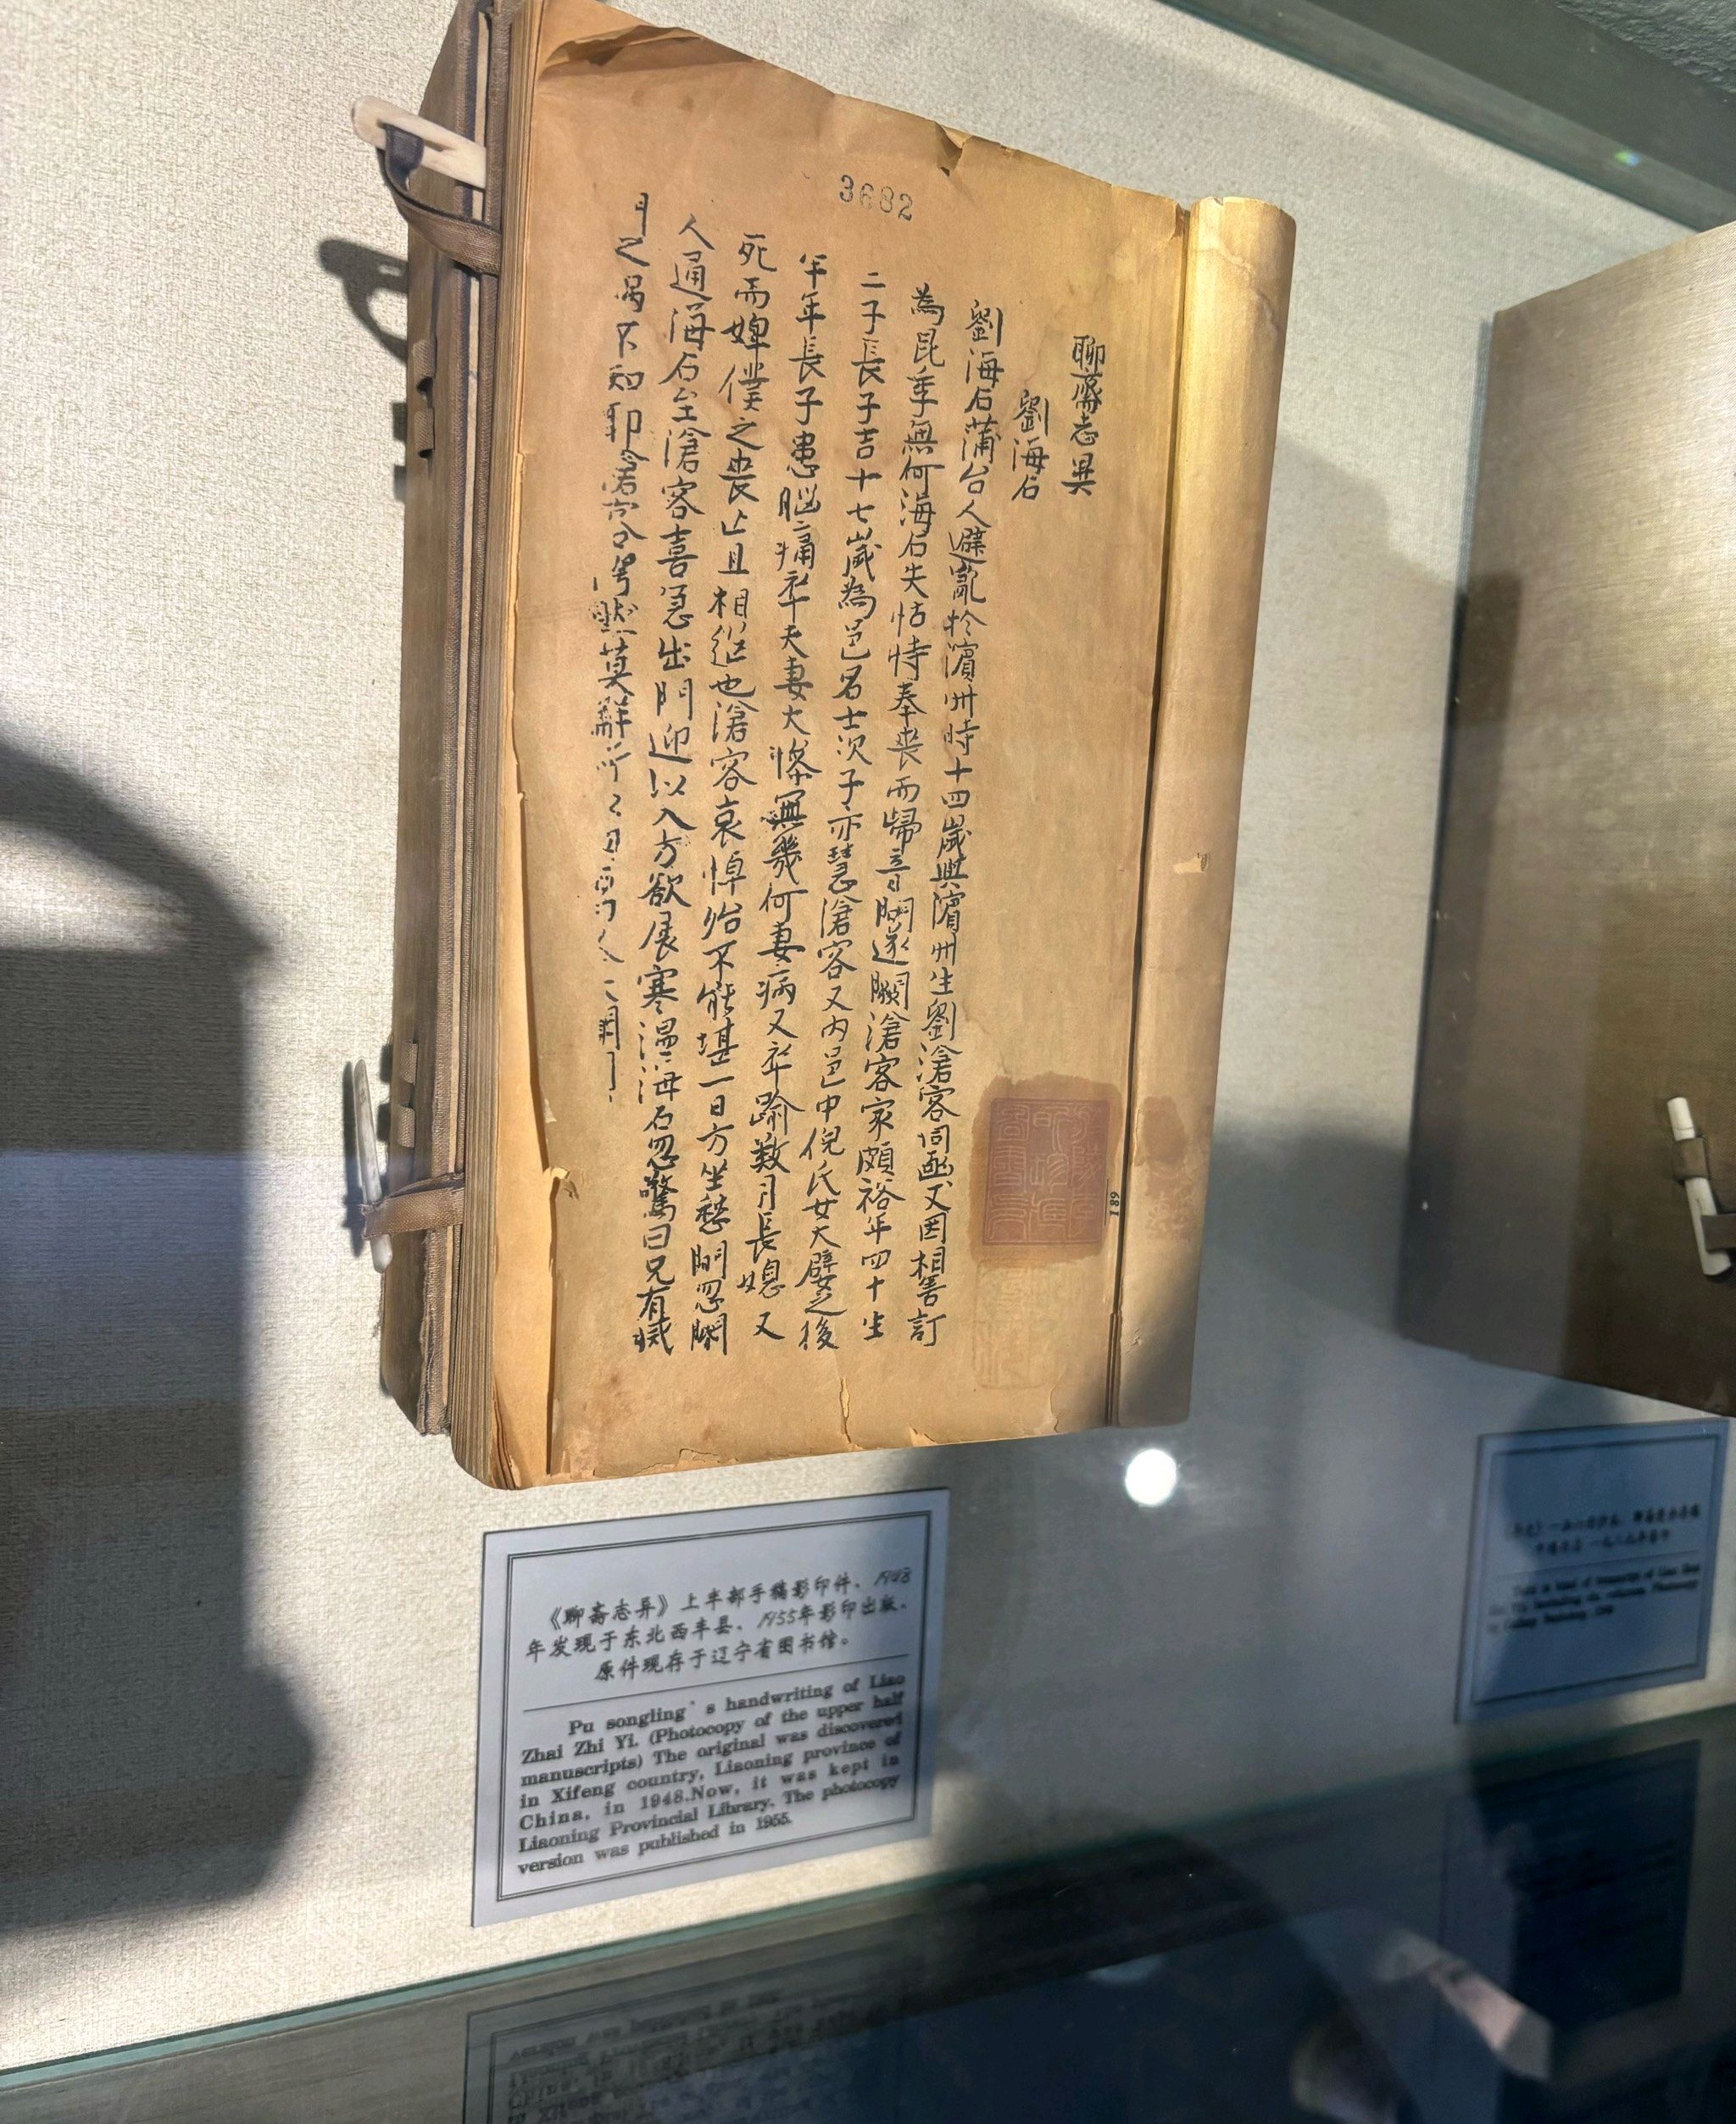 3682
聊齋志異
劉海石
劉海石蒲台人避亂於濱州時十四歲與濱州生劉滄客同函丈因相善訂
為昆季無何海石失怙恃奉喪而歸音問遂闕滄客家頗裕年四十生
二子長子吉十七歲為邑名士次子亦慧滄客又内邑中倪氏女大嬖之後
半年長子患腦痛卒夫妻大慘無幾何妻病又卒踰數月長媳又
死而婢僕之喪亾且相繼也滄客哀悼殆不能堪一日方坐愁間忽閽
人通海石至滄客喜急出門迎以入方欲展寒溫海石忽驚曰兄有滅
門之禍不知耶滄客愕然莫解所
189
《聊斋志异》上半部手稿影印件、1948
年发现于东北西丰县、1955年影印出版、
原件现存于辽宁省图书馆。
Pu songling's handwriting of Liao
Zhai Zhi Yi. (Photocopy of the upper half
manuscripts) The original was discovered
in Xifeng country, Liaoning province of
China, in 1948.Now, it was kept in
Liaoning Provincial Library. The photocopy
version was published in 1955.